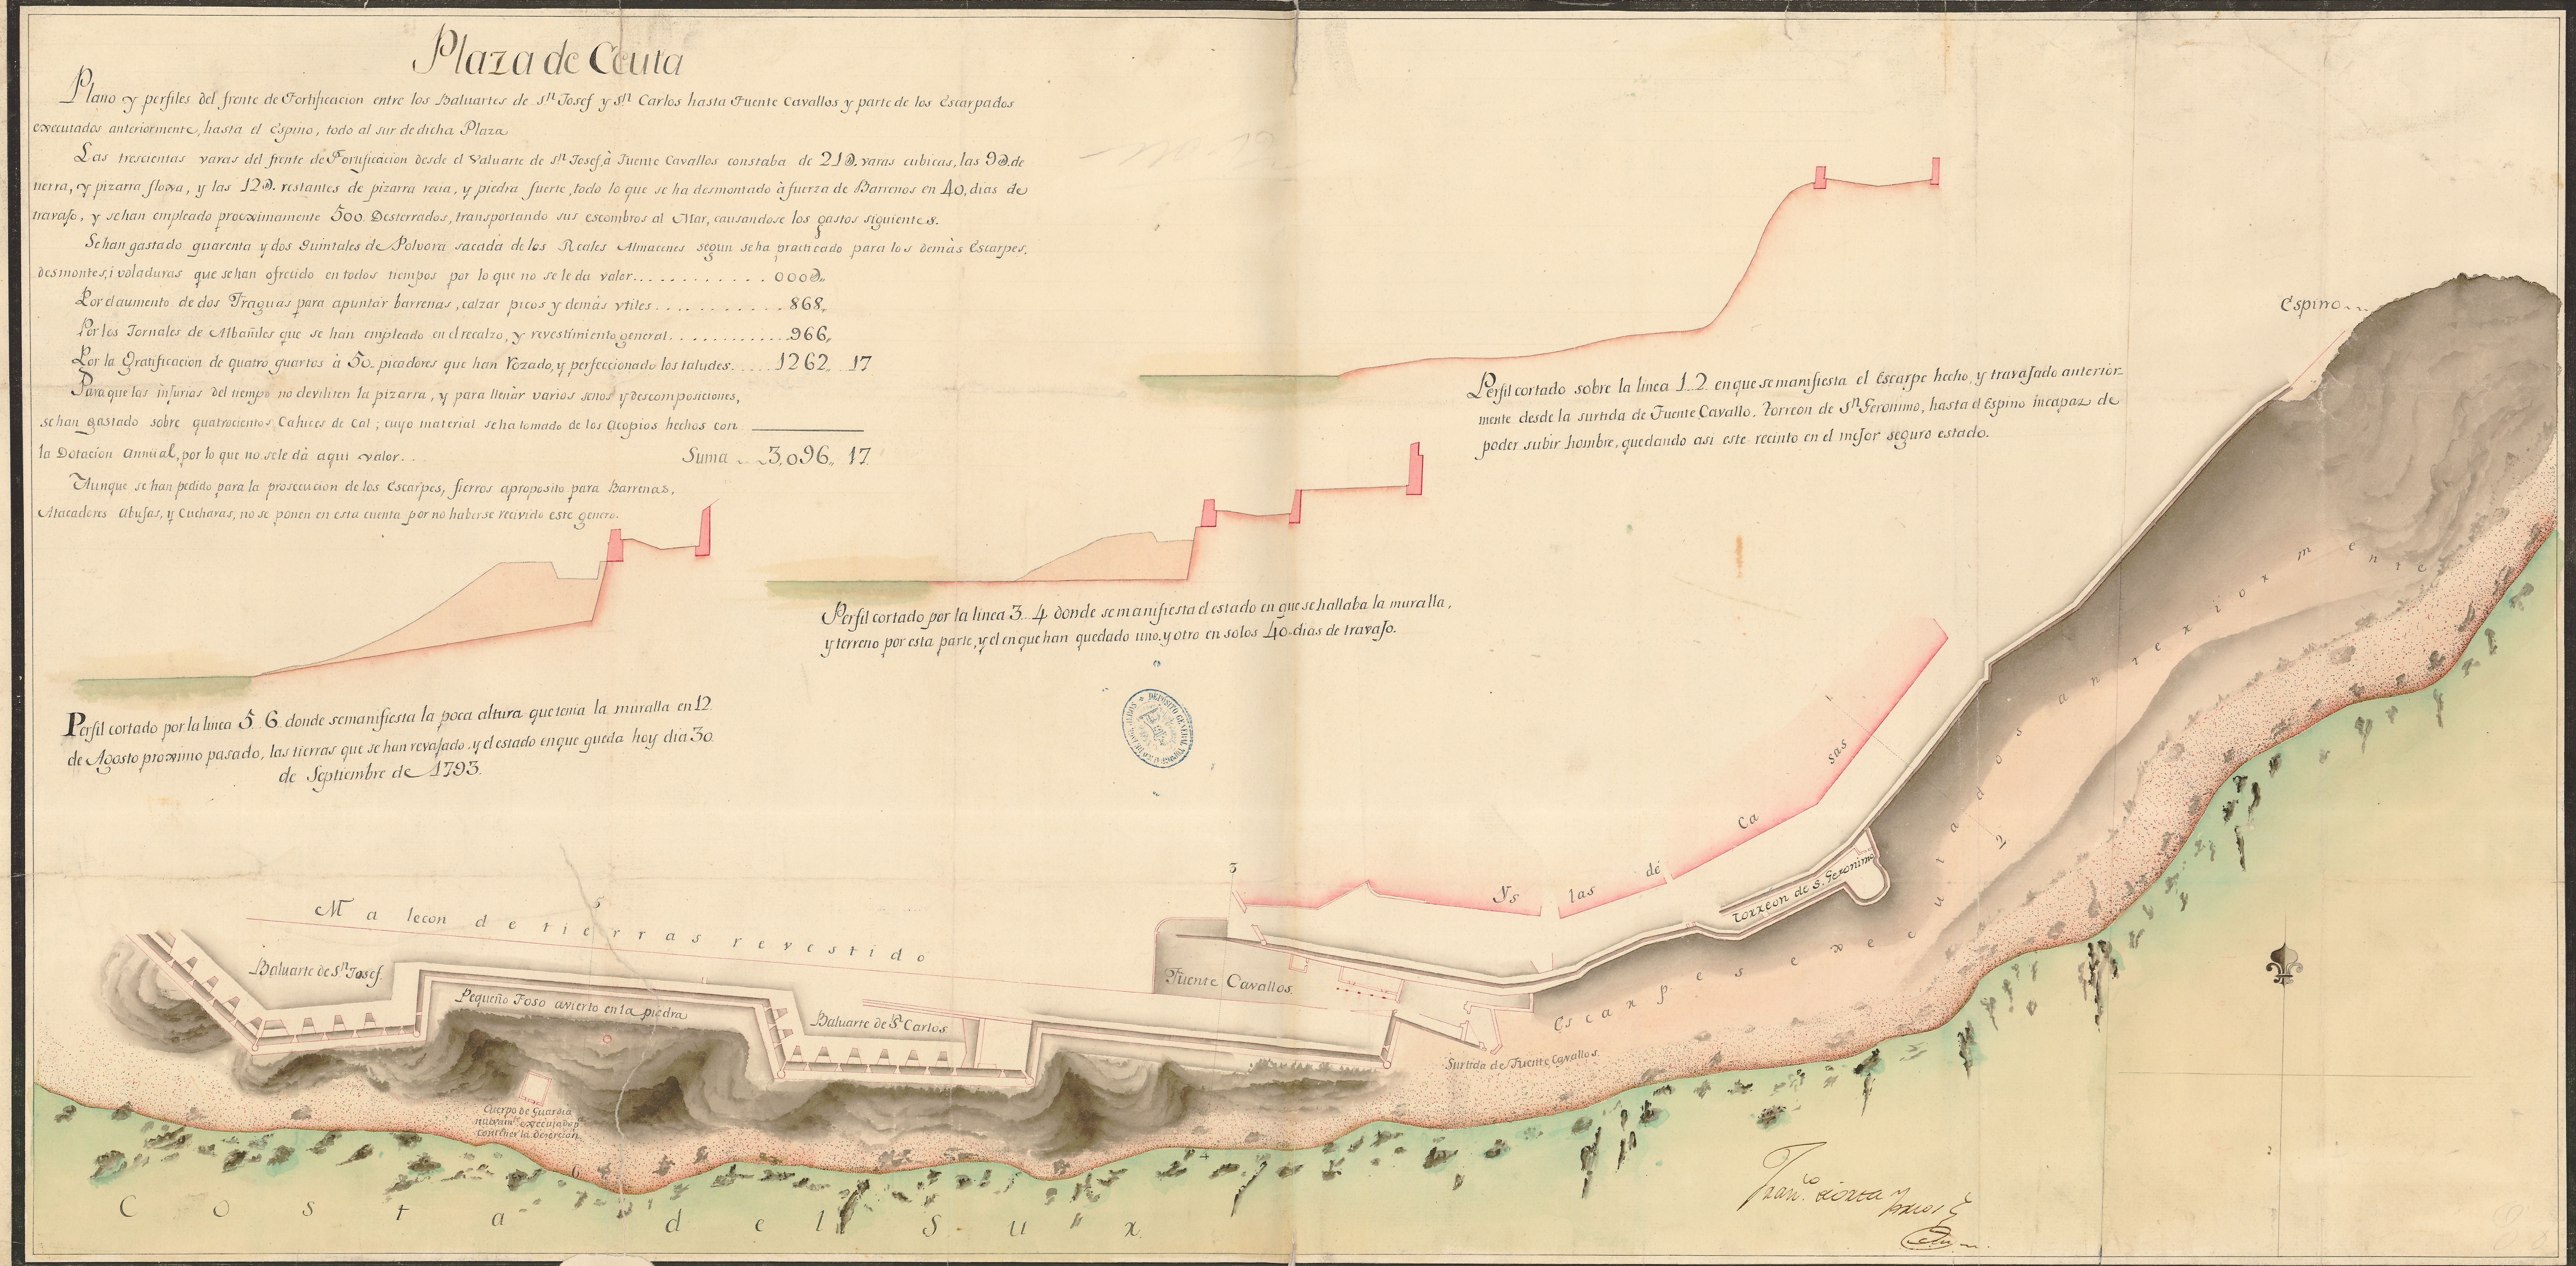 Plaza de Ceuta
Plano y perfiles del frente de Fortificacion entre los Baluartes de Sn. Josef y Sn. Carlos hasta Fuente Cavallos y parte de los Escarpados
executados anteriormente, hasta el Espino, todo al sur de dicha Plaza
Las trescientas varas del frente de Fortificacion desde el Valuarte de Sn. Josef, à Fuente Cavallos constaba de 21D. varas cubicas, las 9D. de
tierra, y pizarra floxa, y las 12D. restantes de pizarra recia, y piedra fuerte, todo lo que se ha desmontado à fuerza de Barrenos en 40, dias de
travajo, y se han empleado proximamente 500 Desterrados, transportando sus escombros al Mar, causandose los gastos siguientes.
Se han gastado quarenta y dos Quintales de Polvora sacada de los Reales Almacenes segun se ha practicado para los demàs Escarpes,
desmontes, i voladuras que se han ofrecido en todos tiempos por lo que no se le da valor.............. 000D.,
Por el aumento de dos Fraguas para apuntar barrenas, calzar picos y demàs vtiles............ 868,,
Por los Jornales de Albañiles que se han empleado en el recalzo, y revestimiento general............ 966,,
Por la Gratificacion de quatro quartos à 50. picadores que han Rozado, y perfeccionado los taludes..... 1262,, 17
Para que las injurias del tiempo no deviliten la pizarra, y para llenàr varios senos y descomposiciones,
se han gastado sobre quatrocientos Cahices de Cal; cuyo material se ha tomado de los Acopios hechos con
la Dotacion Annual, por lo que no se le dà aqui valor... Suma... 3,096,, 17
Aunque se han pedido para la prosecucion de los Escarpes, fierros aproposito para Barrenas,
Atacadores Abujas, y Cucharas, no se ponen en esta cuenta por no haberse recivido este genero.
Perfil cortado sobre la linea 1..2. en que se manifiesta el Escarpe hecho, y travajado anterior-
mente desde la surtida de Fuente Cavallo, Torreon de Sn. Geronimo, hasta el Espino incapaz de
poder subir hombre, quedando asi este recinto en el mejor seguro estado.
Espino...
Perfil cortado por la linea 3..4 donde se manifiesta el estado en que se hallaba la muralla,
y terreno por esta parte, y el en que han quedado uno, y otro en solos 40. dias de travajo.
Perfil cortado por la linea 5..6. donde se manifiesta la poca altura que tenia la muralla en 12
de Agosto proximo pasado, las tierras que se han revajado, y el estado en que queda hoy dia 30
de Septiembre de 1793.
DEPÓSITO GENERAL
Malecon de tierras revestido
5
3
1
2
4
6
Yslas de Casas
Torreon de S. Geronimo
Escarpes executados anteriormente
Baluarte de Sn. Josef
Pequeño Foso avierto en la piedra
Baluarte de Sn. Carlos
Fuente Cavallos.
Surtida de Fuente Cavallos.
Cuerpo de Guardia
executado pa.
contener la desercion
Costa del Sur
Franco.